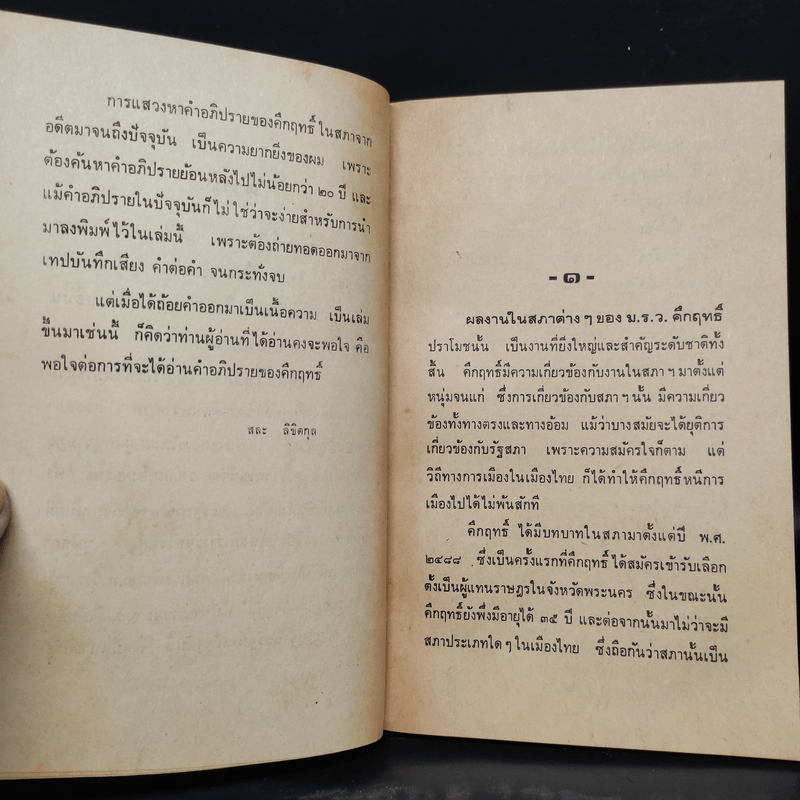 การแสวงหาคำอภิปรายของคึกฤทธิ์ ในสภาจาก
อดีตมาจนถึงปัจจุบัน เป็นความยากยิ่งของผม เพราะ
ต้องค้นหาคำอภิปรายย้อนหลังไปไม่น้อยกว่า ๒๐ ปี และ
แม้คำอภิปรายในปัจจุบันก็ไม่ใช่ว่าจะง่ายสำหรับการนำ
มาลงพิมพ์ไว้ในเล่มนี้ เพราะต้องถ่ายทอดออกมาจาก
เทปบันทึกเสียง คำต่อคำ จนกระทั่งจบ
แต่เมื่อได้ถ้อยคำออกมาเป็นเนื้อความ เป็นเล่ม
ขึ้นมาเช่นนี้ ก็คิดว่าท่านผู้อ่านที่ได้อ่านคงจะพอใจ คือ
พอใจต่อการที่จะได้อ่านคำอภิปรายของคึกฤทธิ์
สละ ลิขิตกุล
-๑-
ผลงานในสภาต่าง ๆ ของ ม.ร.ว. คึกฤทธิ์
ปราโมชนั้น เป็นงานที่ยิ่งใหญ่และสำคัญระดับชาติทั้ง
สิ้น คึกฤทธิ์มีความเกี่ยวข้องกับงานในสภา ฯ มาตั้งแต่
หนุ่มจนแก่ ซึ่งการเกี่ยวข้องกับสภา ฯ นั้น มีความเกี่ยว
ข้องทั้งทางตรงและทางอ้อม แม้ว่าบางสมัยจะได้ยุติการ
เกี่ยวข้องกับรัฐสภา เพราะความสมัครใจก็ตาม แต่
วิถีทางการเมืองในเมืองไทย ก็ได้ทำให้คึกฤทธิ์หนีการ
เมืองไปได้ไม่พ้นสักที
คึกฤทธิ์ ได้มีบทบาทในสภามาตั้งแต่ปี พ.ศ.
๒๔๘๘ ซึ่งเป็นครั้งแรกที่คึกฤทธิ์ได้สมัครเข้ารับเลือก
ตั้งเป็นผู้แทนราษฎรในจังหวัดพระนคร ซึ่งในขณะนั้น
คึกฤทธิ์ยังพึ่งมีอายุได้ ๓๕ ปี และต่อจากนั้นมาไม่ว่าจะมี
สภาประเภทใด ๆ ในเมืองไทย ซึ่งถือกันว่าสภานั้นเป็น